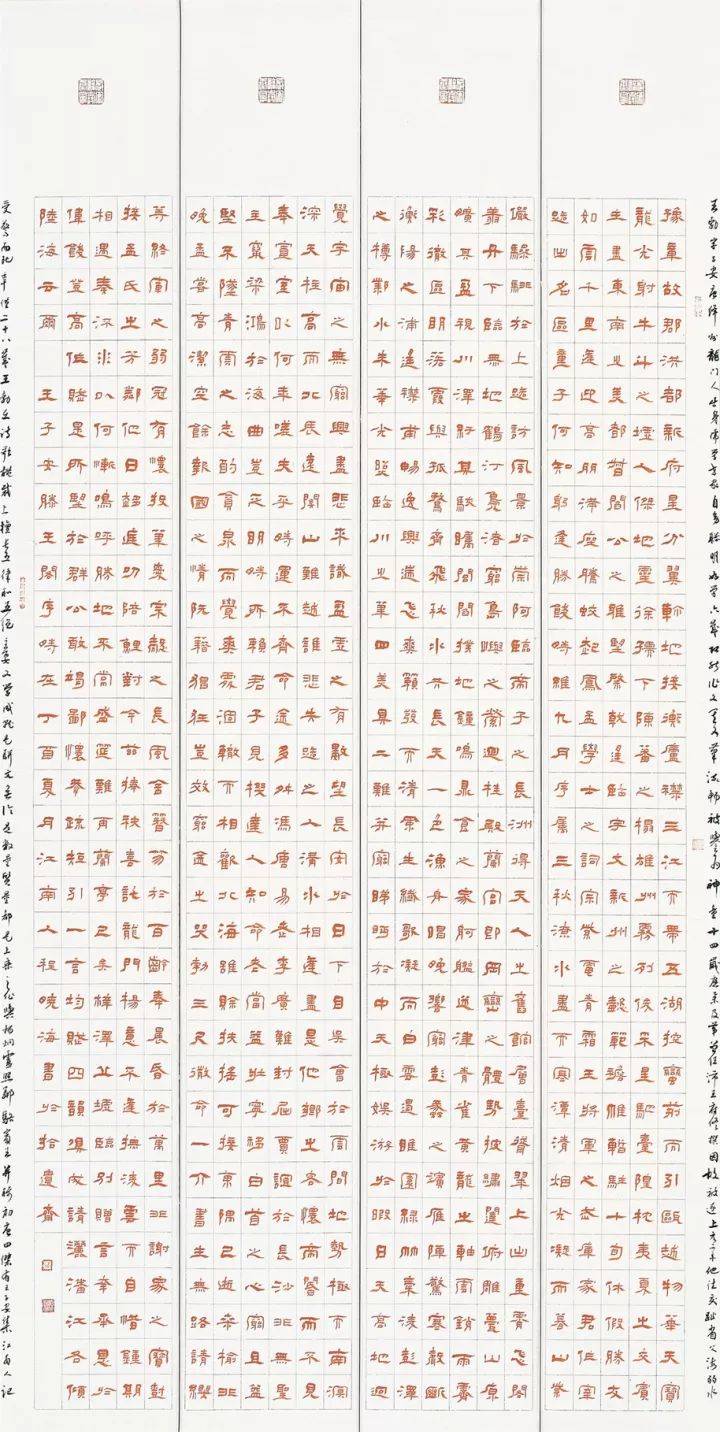 王勃字子安唐絳州龍門人出身儒學世家自幼聰明好學六歲能作文章文筆流暢被譽為神童十四歲應舉及第曾任沛王府修撰因故被逐上元三年他往交趾省父渡溺水
豫章故郡洪都新府星分翼軫地接衡廬襟三江而帶五湖控蠻荊而引甌越物華天寶
龍光射牛斗之墟人傑地靈徐孺下陳蕃之榻雄州霧列俊采星馳臺隍枕夷夏之交賓
主盡東南之美都督閻公之雅望棨戟遙臨宇文新州之懿範襜帷暫駐十旬休假勝友
如雲千里逢迎高朋滿座騰蛟起鳳孟學士之詞宗紫電青霜王將軍之武庫家君作宰
路出名區童子何知躬逢勝餞時維九月序屬三秋潦水盡而寒潭清煙光凝而暮山紫
儼驂騑於上路訪風景於崇阿臨帝子之長洲得天人之舊館層臺聳翠上出重霄飛閣
翔丹下臨無地鶴汀鳧渚窮島嶼之縈迴桂殿蘭宮即岡巒之體勢披繡闥俯雕甍山原
曠其盈視川澤紆其駭矚閭閻撲地鐘鳴鼎食之家舸艦迷津青雀黃龍之軸雲銷雨霽
彩徹區明落霞與孤鶩齊飛秋水共長天一色漁舟唱晚響窮彭蠡之濱雁陣驚寒聲斷
衡陽之浦遙襟甫暢逸興遄飛爽籟發而清風生纖歌凝而白雲遏睢園綠竹氣凌彭澤
之樽鄴水朱華光照臨川之筆四美具二難并窮睇眄於中天極娛游於暇日天高地迥
覺宇宙之無窮興盡悲來識盈虛之有數望長安於日下目吳會於雲間地勢極而南溟
深天柱高而北辰遠關山難越誰悲失路之人溝水相逢盡是他鄉之客懷帝閽而不見
奉宣室以何年嗟夫乎時運不齊命途多舛馮唐易老李廣難封屈賈誼於長沙非無聖
主竄梁鴻於海曲豈乏明時所賴君子見機達人知命老當益壯寧移白首之心窮且益
堅不墜青雲之志酌貪泉而覺爽處涸轍而相歡北海雖賒扶搖可接東隅已逝桑榆非
晚孟嘗高潔空餘報國之情阮籍猖狂豈效窮途之哭勃三尺微命一介書生無路請纓
等終軍之弱冠有懷投筆愛宗慤之長風舍簪笏於百齡奉晨昏於萬里非謝家之寶樹
接孟氏之芳鄰他日趨庭叨陪鯉對今茲捧袂喜託龍門楊意不逢撫凌雲而自惜鍾期
相遇奏流水以何慚嗚呼勝地不常盛筵難再蘭亭已矣梓澤丘墟臨別贈言幸承恩於
偉餞登高作賦是所望於群公敢竭鄙懷恭疏短引一言均賦四韻俱成請灑潘江各傾
陸海云爾 王子安滕王閣序時在丁酉夏月江南人程曉海書於拾遺齋
受驚而死年僅二十八歲王勃文詩歌擅長五律和五絕主要文學成就是駢文無論是數量質量都是上乘之作與楊炯盧照鄰駱賓王并稱初唐四傑有王子安集江南人記